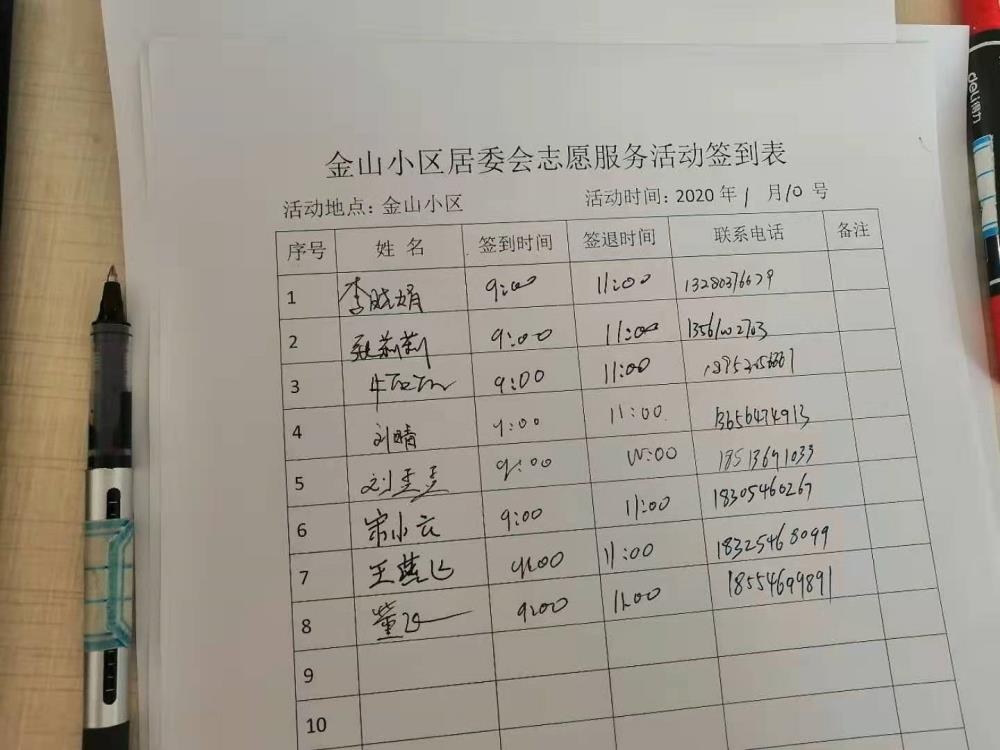 金山小区居委会志愿服务活动签到表
活动地点：金山小区 活动时间：2020年1月10号
序号 姓名 签到时间 签退时间 联系电话 备注
1 李晓娟 9:00 11:00 13280376679
2 张莉莉 9:00 11:00
3 9:00 11:00
4 刘晴 9:00 11:00 13656474913
5 刘孟孟 9:00 11:00 18513691033
6 宋小云 9:00 11:00 18305460267
7 王燕飞 9:00 11:00 18325468099
8 董 9:00 11:00 18554699891
9
10
deli 得力